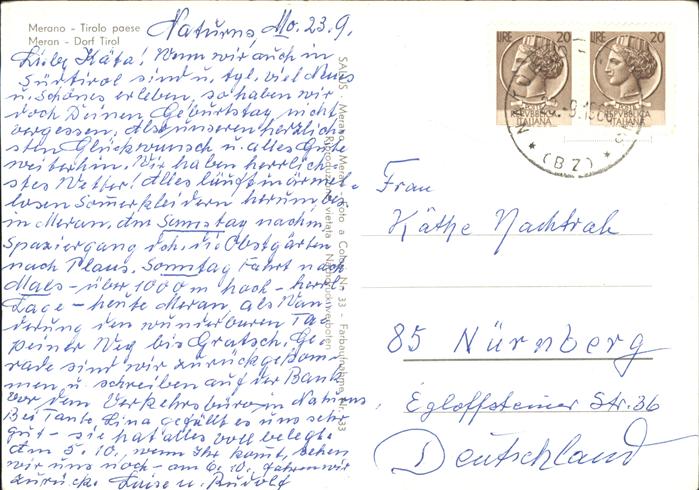 Merano - Tirolo paese
Meran - Dorf Tirol
Naturns, Mo. 23.9.
Liebe Käta! Wenn wir auch in
Südtirol sind u. tgl. viel Neues
u. Schönes erleben, so haben wir
doch Deinen Geburtstag nicht
vergessen. Also unseren herzlich-
sten Glückwunsch u. alles Gute
weiterhin. Wir haben herrlich-
stes Wetter! Alles läuft in ärmel-
losen Sommerkleidern herum, bis
in Meran. Am Samstag nachm.
Spaziergang dch. die Obstgärten
nach Plaus, Sonntag Fahrt nach
- über 1000 m hoch - herrl.
Lage - heute Meran, als Wan-
derung den wunderbaren Tap-
peiner Weg bis Gratsch. Ge-
rade sind wir zurückgekom-
men u. schreiben auf der Bank
vor dem Verkehrsbüro in Naturns.
Bei Tante Lina gefällt es uns sehr
gut - sie hat alles voll belegt.
Am 5.10., wenn Ihr kommt, sehen
wir uns noch - am 6.10. fahren wir
zurück. Luise u. Rudolf
SALUS - Merano - Meran
Foto a Colori Nr. 33 - Farbaufnahme Nr. 33
Riproduzione vietata - Nachdruck verboten
LIRE 20
REPVBBLICA
ITALIANA
LIRE 20
REPVBBLICA
ITALIANA
* (BZ) *
Frau
Käthe Nachtrab
85 Nürnberg
Egloffsteiner Str. 36
Deutschland